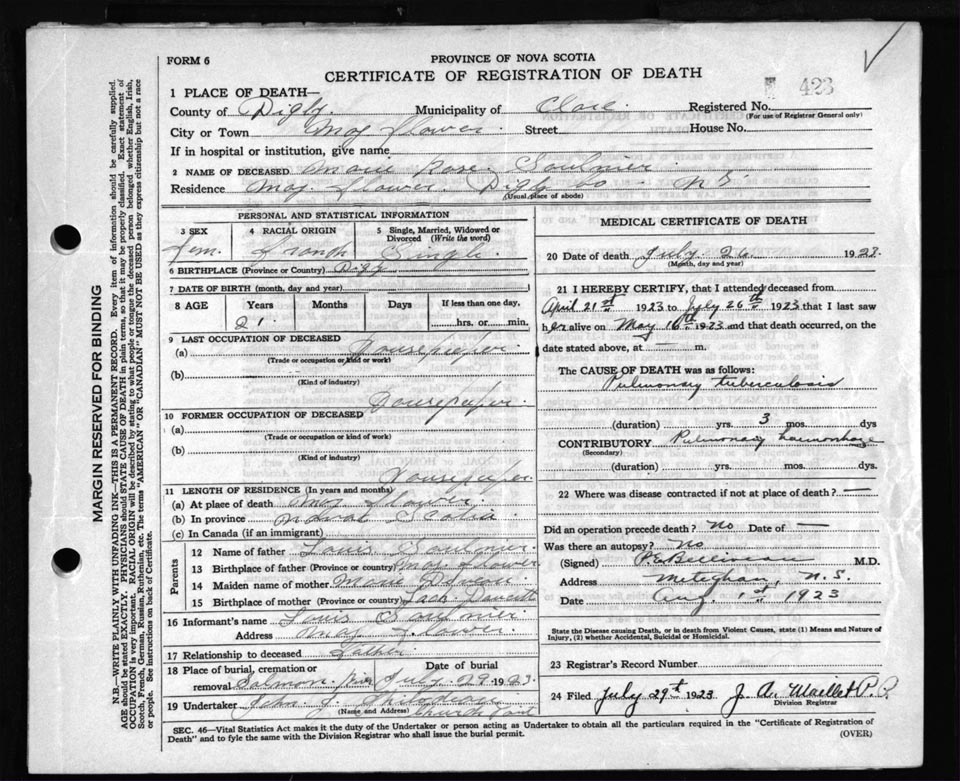 FORM 6
PROVINCE OF NOVA SCOTIA
CERTIFICATE OF REGISTRATION OF DEATH
1 PLACE OF DEATH—
423
County of Digby Municipality of Clare Registered No.
(For use of Registrar General only)
City or Town May Flower Street House No.
If in hospital or institution, give name
2 NAME OF DECEASED Marie Rose Saulnier
Residence May Flower Digby Co N S
(Usual place of abode)
PERSONAL AND STATISTICAL INFORMATION
3 SEX
4 RACIAL ORIGIN
5 Single, Married, Widowed or Divorced (Write the word)
Fem. French Single
6 BIRTHPLACE (Province or Country) Digby
7 DATE OF BIRTH (month, day and year)
8 AGE Years Months Days If less than one day,
21 hrs. or min.
9 LAST OCCUPATION OF DECEASED
(a) Housekeeper
(Trade or occupation or kind of work)
(b)
(Kind of industry)
Housekeeper
10 FORMER OCCUPATION OF DECEASED
(a)
(Trade or occupation or kind of work)
(b)
(Kind of industry)
Housekeeper
11 LENGTH OF RESIDENCE (In years and months)
(a) At place of death May Flower
(b) In province Nova Scotia
(c) In Canada (if an immigrant)
Parents
12 Name of father Louis Saulnier
13 Birthplace of father (Province or Country) May Flower
14 Maiden name of mother Marie
15 Birthplace of mother (Province or country) Lack Doucett
16 Informant's name Louis Saulnier
Address May Flower
17 Relationship to deceased Father
18 Place of burial, cremation or removal Salmon River
Date of burial July 29 1923
19 Undertaker John
(Name and Address) Church
MEDICAL CERTIFICATE OF DEATH
20 Date of death July 26 1923
(Month, day and year)
21 I HEREBY CERTIFY, that I attended deceased from
April 21st 1923 to July 26th 1923 that I last saw
her alive on May 16th 1923 and that death occurred, on
date stated above, at — m.
The CAUSE OF DEATH was as follows:
Pulmonary tuberculosis
(duration) yrs. 3 mos. dys.
CONTRIBUTORY Pulmonary haemorrhage
(Secondary)
(duration) yrs. mos. dys.
22 Where was disease contracted if not at place of death? —
Did an operation precede death? No Date of —
Was there an autopsy? No
(Signed) P. E. Belliveau M.D.
Address Meteghan, N.S.
Date Aug. 1st 1923
State the Disease causing Death, or in death from Violent Causes, state (1) Means and Nature of
Injury, (2) whether Accidental, Suicidal or Homicidal.
23 Registrar's Record Number
24 Filed July 29th 1923 J. A. Maillet P.P.
Division Registrar
SEC. 46—Vital Statistics Act makes it the duty of the Undertaker or person acting as Undertaker to obtain all the particulars required in the "Certificate of Registration of
Death" and to fyle the same with the Division Registrar who shall issue the burial permit.
(OVER)
MARGIN RESERVED FOR BINDING
N.B.—WRITE PLAINLY WITH UNFADING INK—THIS IS A PERMANENT RECORD. Every item of information should be carefully supplied.
AGE should be stated EXACTLY. PHYSICIANS should STATE CAUSE OF DEATH in plain terms, so that it may be properly classified. Exact statement of
OCCUPATION is very important. RACIAL ORIGIN will be described by stating to what people or tongue the deceased person belonged whether English, Irish,
Scotch, French, German, Russian, Ruthenian, etc. The terms "AMERICAN" or "CANADIAN" MUST NOT BE USED as they express citizenship but not a race
or people. See instructions on back of Certificate.